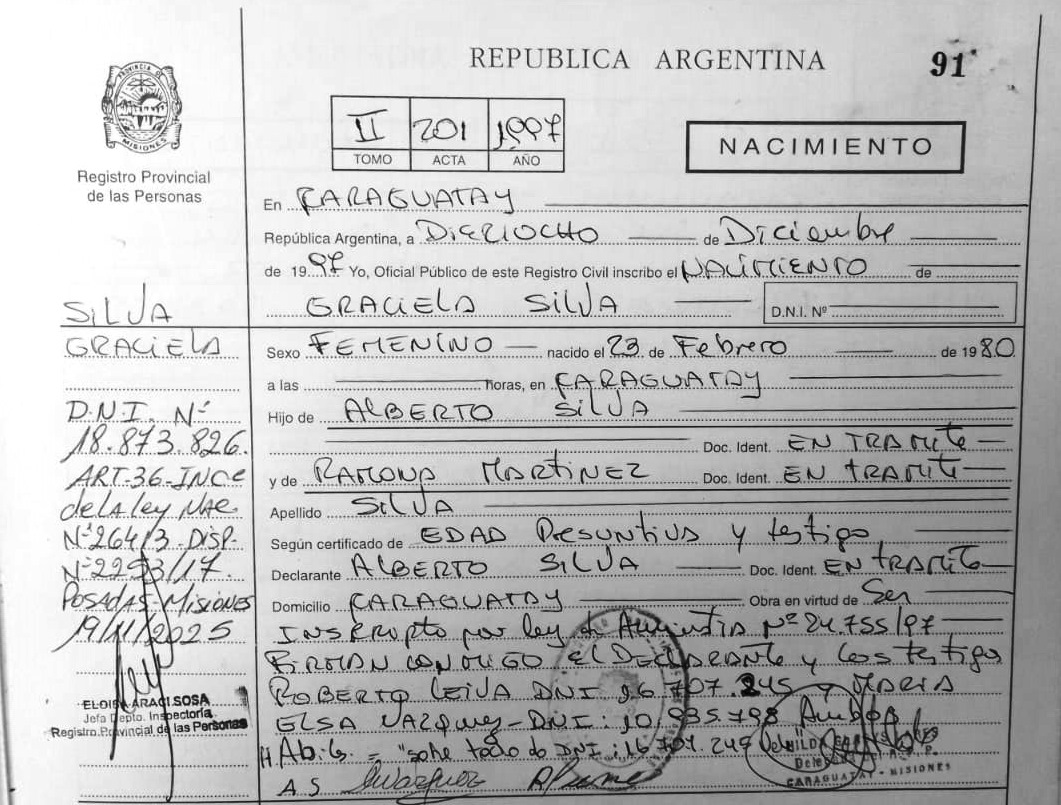 REPUBLICA ARGENTINA
91
PROVINCIA DE MISIONES
Registro Provincial
de las Personas
II 201 1997
TOMO ACTA AÑO
NACIMIENTO
En CARAGUATAY
República Argentina, a DIECIOCHO de Diciembre
de 1997 Yo, Oficial Público de este Registro Civil inscribo el NACIMIENTO de
GRACIELA SILVA D.N.I. Nº
SILVA
GRACIELA
D.N.I. Nº
18.873.826.
ART-36-INC c
de la ley Nac
Nº 26413-DISP-
Nº 2293/17.
POSADAS-MISIONES
19/11/2025
ELOISA ARACI SOSA
Jefa Depto. Inspectoría
Registro Provincial de las Personas
Sexo FEMENINO nacido el 23 de Febrero de 1980
a las horas, en CARAGUATAY
Hijo de ALBERTO SILVA
Doc. Ident. EN TRAMITE
y de RAMONA MARTINEZ Doc. Ident. EN TRAMITE
Apellido SILVA
Según certificado de EDAD Presuntiva y testigo
Declarante ALBERTO SILVA Doc. Ident. EN TRAMITE
Domicilio CARAGUATAY Obra en virtud de Ser
INSCRIPTO por ley de Amnistia Nº 24.755/97
FIRMAN CONMIGO EL DECLARANTE y los testigos
ROBERTO LEIVA DNI 16.707.245 y MARIA
ELSA VAZQUEZ - DNI: 10.935.798 Ambos
H. Ab. G. = "sobre todo do DNI: 16.707.249
A.S.
CARAGUATAY - MISIONES